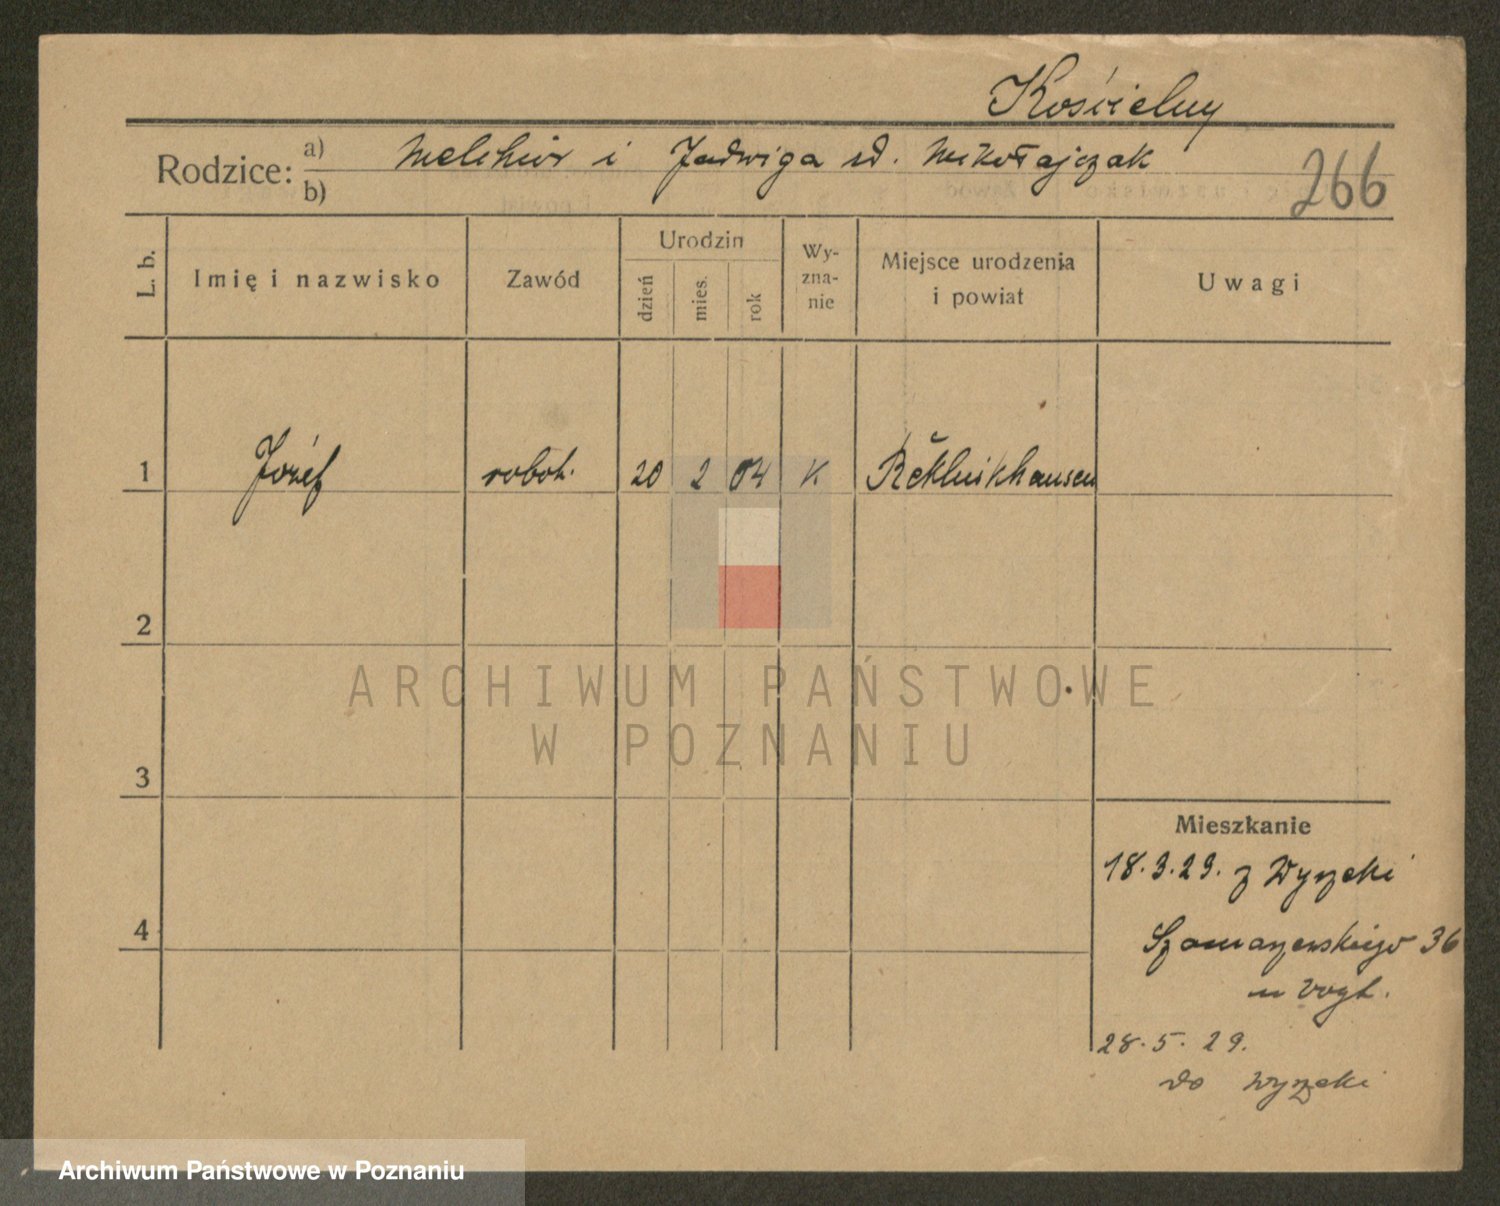 Kościelny
Rodzice: a) Melchior i Jadwiga zd. Mikołajczak
b)
266
L. b.
Imię i nazwisko
Zawód
Urodzin
dzień
mies.
rok
Wy-
zna-
nie
Miejsce urodzenia
i powiat
Uwagi
1 Józef robot. 20 2 04 K Reklinkhausen
2
ARCHIWUM PAŃSTWOWE
W POZNANIU
3
Mieszkanie
18.3.29. z Wyrzeki
4
Szamarzewskiego 36
u Vogt.
28.5.29.
do Wyrzeki
Archiwum Państwowe w Poznaniu